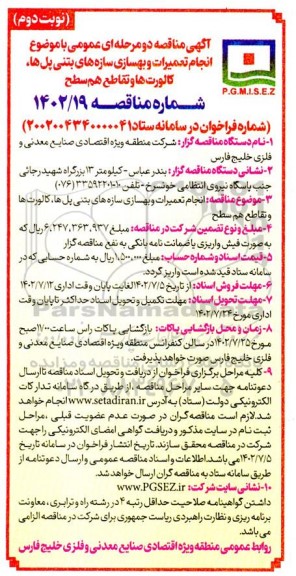 (نوبت دوم)
آگهی مناقصه دو مرحله ای عمومی با موضوع
انجام تعمیرات و بهسازی سازه های بتنی پل ها،
کالورت ها و تقاطع هم سطح
P.G.M.I.S.E.Z
شماره مناقصه ۱۴۰۲/۱۹
(شماره فراخوان در سامانه ستاد ۲۰۰۲۰۰۴۳۴۰۰۰۰۰۴۱)
۱-نام دستگاه مناقصه گزار: شرکت منطقه ویژه اقتصادی صنایع معدنی و
فلزی خلیج فارس
۲-نشانی دستگاه مناقصه گزار: بندرعباس - کیلومتر ۱۳ بزرگراه شهید رجائی
جنب پاسگاه نیروی انتظامی خونسرخ - تلفن ۱۰-۳۳۵۹۲۲۰۱ (۰۷۶)
۳-موضوع مناقصه: انجام تعمیرات و بهسازی سازه های بتنی پل ها، کالورت ها و
تقاطع هم سطح
۴-مبلغ و نوع تضمین شرکت در مناقصه: مبلغ ۶,۲۴۷,۳۶۳,۹۳۷ ریال که
به صورت فیش واریزی یا ضمانت نامه بانکی به نفع مناقصه گزار
۵-قیمت اسناد و شماره حساب: مبلغ ۱,۵۰۰,۰۰۰ ریال به شماره حسابی که در
سامانه ستاد قید شده است واریز گردد.
۶-مهلت فروش اسناد: از تاریخ ۱۴۰۲/۷/۵ لغایت پایان وقت اداری ۱۴۰۲/۷/۱۲
۷-مهلت تحویل اسناد: مهلت تکمیل و تحویل اسناد حداکثر تا پایان وقت
اداری مورخ ۱۴۰۲/۷/۲۴
۸-زمان و محل بازگشایی پاکات: بازگشایی پاکات راس ساعت ۱۷:۰۰ صبح
مورخ ۱۴۰۲/۷/۲۵ در سالن کنفرانس منطقه ویژه اقتصادی صنایع معدنی و
فلزی خلیج فارس صورت خواهد پذیرفت.
۹- کلیه مراحل برگزاری فراخوان از دریافت و تحویل اسناد مناقصه تا ارسال
دعوتنامه جهت سایر مراحل مناقصه، از طریق درگاه سامانه تدارکات
الکترونیکی دولت (ستاد) به آدرس www.setadiran.ir انجام خواهد
شد. لازم است مناقصه گران در صورت عدم عضویت قبلی، مراحل
ثبت نام در سایت مذکور و دریافت گواهی امضای الکترونیکی را جهت
شرکت در مناقصه محقق سازند. تاریخ انتشار فراخوان در سامانه تاریخ
۱۴۰۲/۷/۵ می باشد. اطلاعات و اسناد مناقصه عمومی و ارسال دعوتنامه از
طریق سامانه ستاد به مناقصه گران ارسال خواهد شد.
۱۰-نشانی سایت شرکت: www.PGSEZ.ir
داشتن گواهینامه صلاحیت حداقل رتبه ۴ در رشته راه و ترابری، معاونت
برنامه ریزی و نظارت راهبردی ریاست جمهوری برای شرکت در مناقصه الزامی
می باشد.
روابط عمومی منطقه ویژه اقتصادی صنایع معدنی و فلزی خلیج فارس